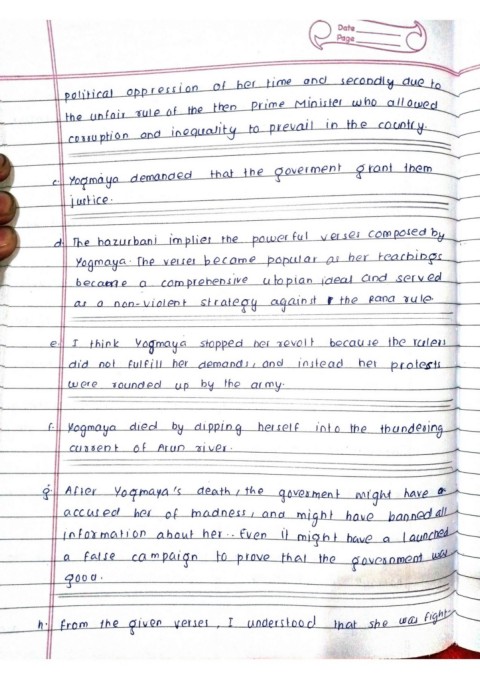 Date
Page
political oppression of her time and secondly due to
the unfair rule of the then Prime Minister who allowed
corruption and inequality to prevail in the country.
c. Yogmaya demanded that the goverment grant them
justice.
d. The hazurbani implies the powerful verses composed by
Yogmaya. The verses became popular as her teachings
became a comprehensive utopian ideal and served
as a non-violent strategy against the Rana rule
e. I think Yogmaya stopped her revolt because the rulers
did not fulfill her demands, and instead her protests
were rounded up by the army.
f. Yogmaya died by dipping herself into the thundering
current of Arun river.
g. After Yogmaya's death, the goverment might have a
accused her of madness, and might have banned all
information about her.. Even it might have a launched
a false campaign to prove that the government was
good.
h. From the given verses, I understood that she was fight-